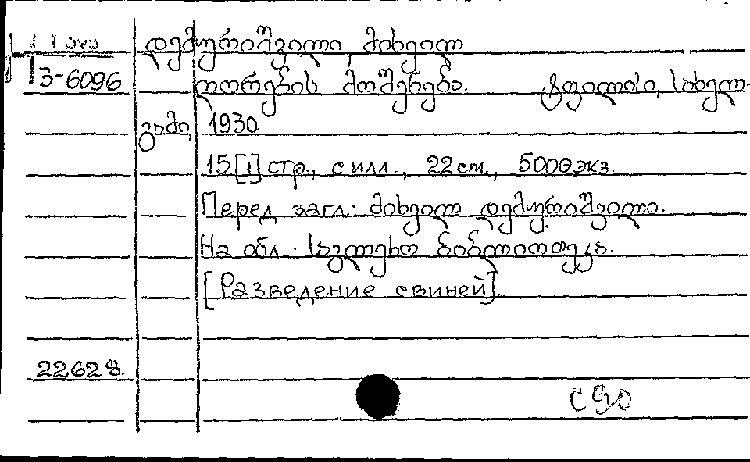 დემურიშვილი, მიხეილ
Т3-6096 ღორების მოშენება. ტფილისი, სახელ-
გამი, 1930
15[1] стр., с илл., 22 см., 5000 экз.
Перед загл: მიხეილ დემურიშვილი.
На обл: სკოლეხო ბიბლიოთეკა.
[Разведение свиней]
22628